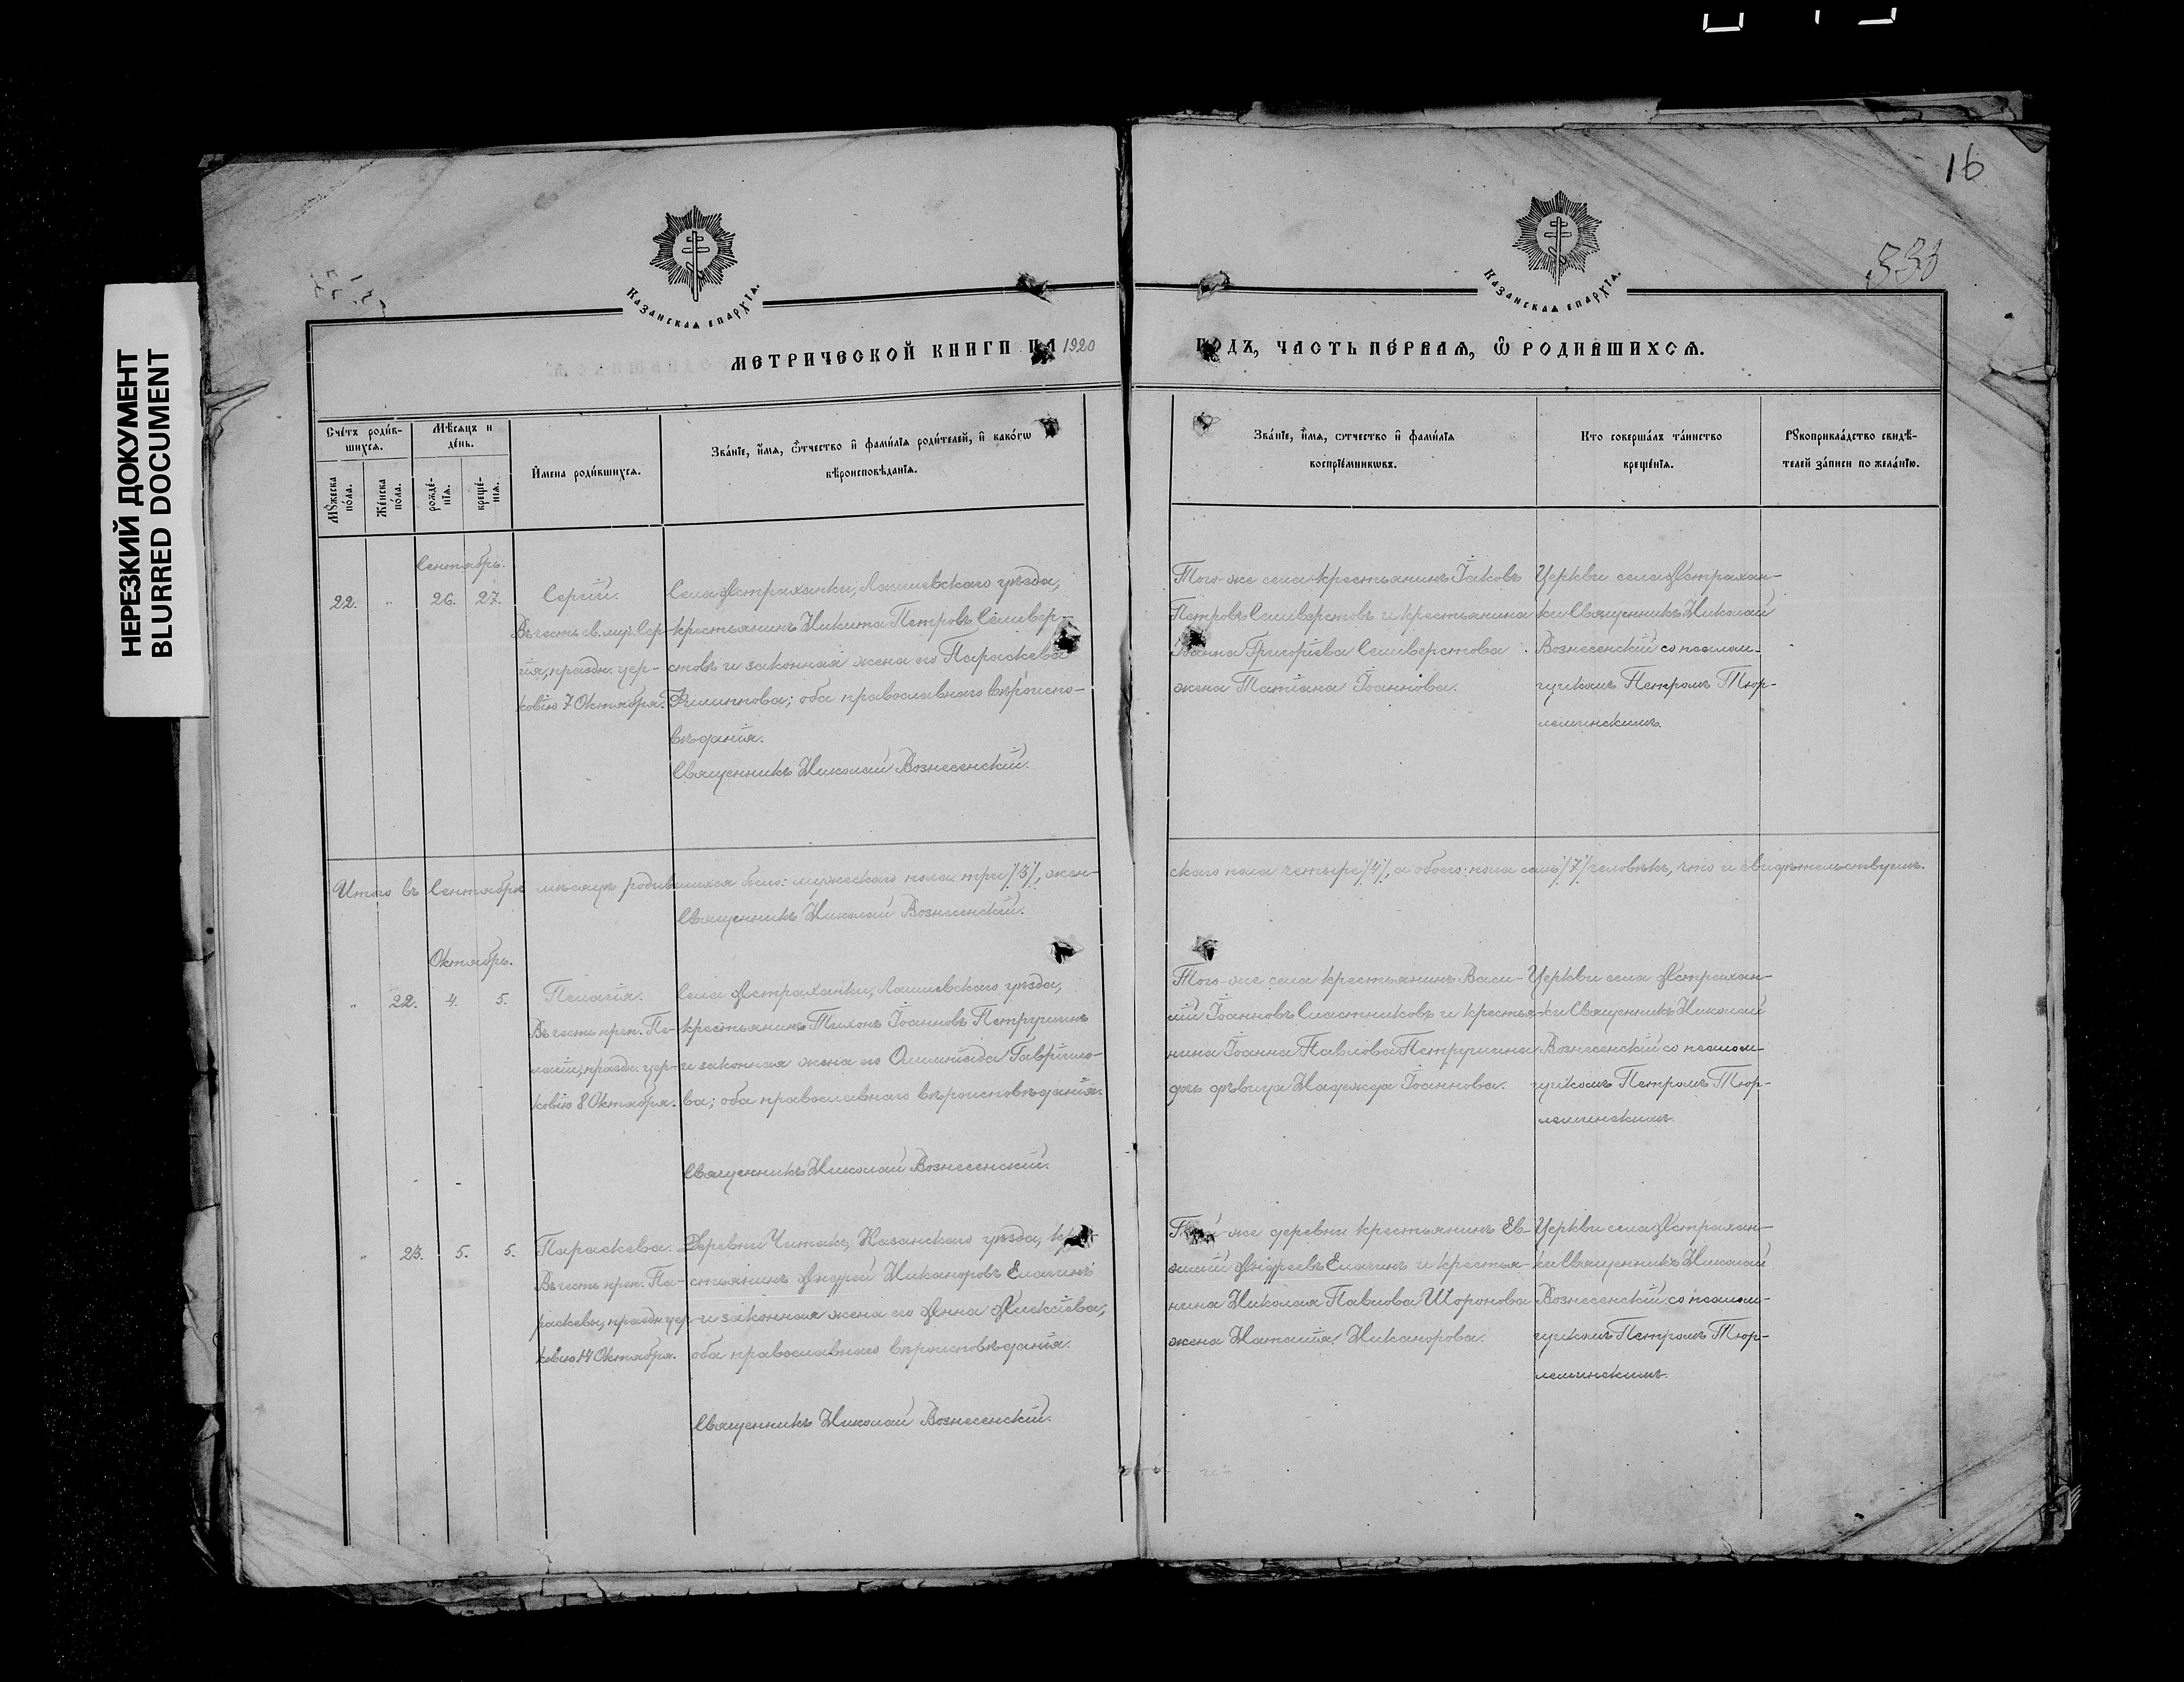 16
330
НЕРЕЗКИЙ ДОКУМЕНТ
BLURRED DOCUMENT
КАЗАНСКАѦ ЕПАРХІѦ.
КАЗАНСКАѦ ЕПАРХІѦ.
МЕТРИЧЕСКОЙ КНИГИ НА 1920 ГОДЪ, ЧАСТЬ ПЕ́РВАЯ, Ѽ РОДИВШИХСѦ.
Сче́тъ роди́в-
шихсѧ.
Мꙋ́жеска
по́ла.
Же́нска
по́ла.
Мѣ́сѧцъ и
де́нь.
рожде́-
нїѧ.
креще́-
нїѧ.
И҆мена роди́вшихсѧ.
Зва́нїе, и҆́мѧ, ѻ҆́тчество и҆ фами́лїѧ роди́телей, и҆ како́гѡ
вѣроисповѣ́данїѧ.
Зва́нїе, и҆́мѧ, ѻ҆́тчество и҆ фами́лїѧ
воспрїе́мникѡвъ.
Кто соверша́лъ та́инство
креще́нїѧ.
Рꙋкоприкла́дство свидѣ́-
телей за́писи по жела́нїю.
Сентябрь.
22. „ 26. 27.
Сергій.
Въ честь св. муч. Сер-
гія, праздн. цер-
ковію 7 Октября.
Села Астраханки, Лаишевскаго уѣзда,
крестьянинъ Никита Петровъ Селивер-
стовъ и законная жена его Параскева
Филиппова; оба православнаго вѣроиспо-
вѣданія.
Священникъ Николай Вознесенскій.
Того-же села крестьянинъ Іаковъ
Петровъ Селиверстовъ и крестьянина
Іоанна Григоріева Селиверстова
жена Татіана Іоаннова.
Церкви села Астрахан-
ки Священникъ Николай
Вознесенскій со псалом-
щикомъ Петромъ Тюр-
леминскимъ.
Итого въ Сентябрѣ мѣсяцѣ родившихся было: мужескаго пола три /3/, жен-
скаго пола четыре /4/, а обоего пола семь /7/ человѣкъ, что и свидѣтельствуемъ.
Священникъ Николай Вознесенскій.
Октябрь.
„ 22. 4. 5.
Пелагія.
Въ честь преп. Пе-
лагіи, праздн. цер-
ковію 8 Октября.
Села Астраханки, Лаишевскаго уѣзда,
крестьянинъ Тихонъ Іоанновъ Петрушинъ
и законная жена его Олимпіада Гавріило-
ва; оба православнаго вѣроисповѣданія.
Священникъ Николай Вознесенскій.
Того-же села крестьянинъ Васи-
лій Іоанновъ Сластниковъ и крестья-
нина Іоанна Павлова Петрушина
дочь дѣвица Надежда Іоаннова.
Церкви села Астрахан-
ки Священникъ Николай
Вознесенскій со псалом-
щикомъ Петромъ Тюр-
леминскимъ.
„ 23. 5. 5.
Параскева.
Въ честь преп. Па-
раскевы, праздн. цер-
ковію 14 Октября.
Деревни Читакъ, Казанскаго уѣзда, кре-
стьянинъ Андрей Никаноровъ Елагинъ
и законная жена его Анна Алексіева;
оба православнаго вѣроисповѣданія.
Священникъ Николай Вознесенскій.
Той-же деревни крестьянинъ Ев-
Андреевъ Елагинъ и крестья-
нина Николая Павлова Шоронова
жена Наталія Никанорова.
Церкви села Астрахан-
ки Священникъ Николай
Вознесенскій со псалом-
щикомъ Петромъ Тюр-
леминскимъ.